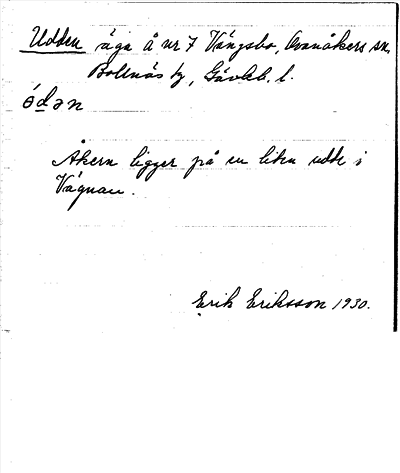 Udden äga å nr 7 Vängsbo, Ovanåkers sn,
Bollnäs tg, Gävleb. l.
ódən
Åkern ligger på en liten udde i
Vågnan.
Erik Eriksson 1930.